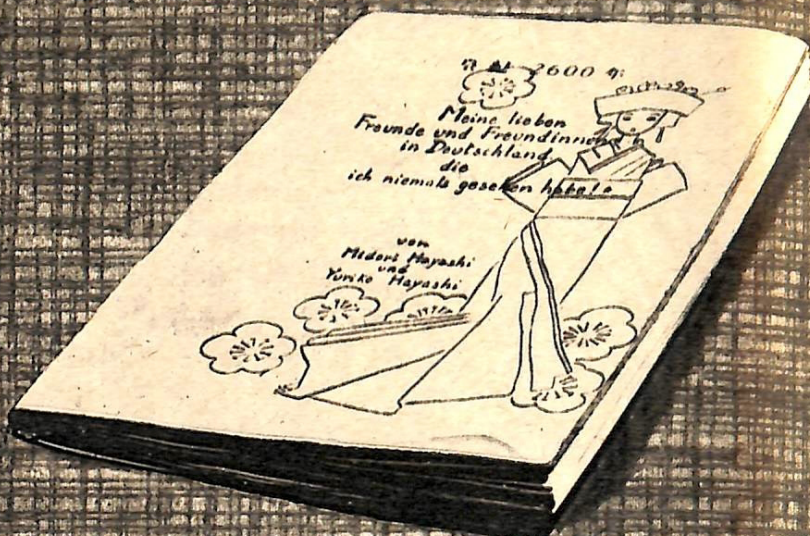 2600
Meine lieben
Freunde und Freundinnen
in Deutschland
die
ich niemals gesehen habe!
von
Midori Hayashi
und
Yuriko Hayashi